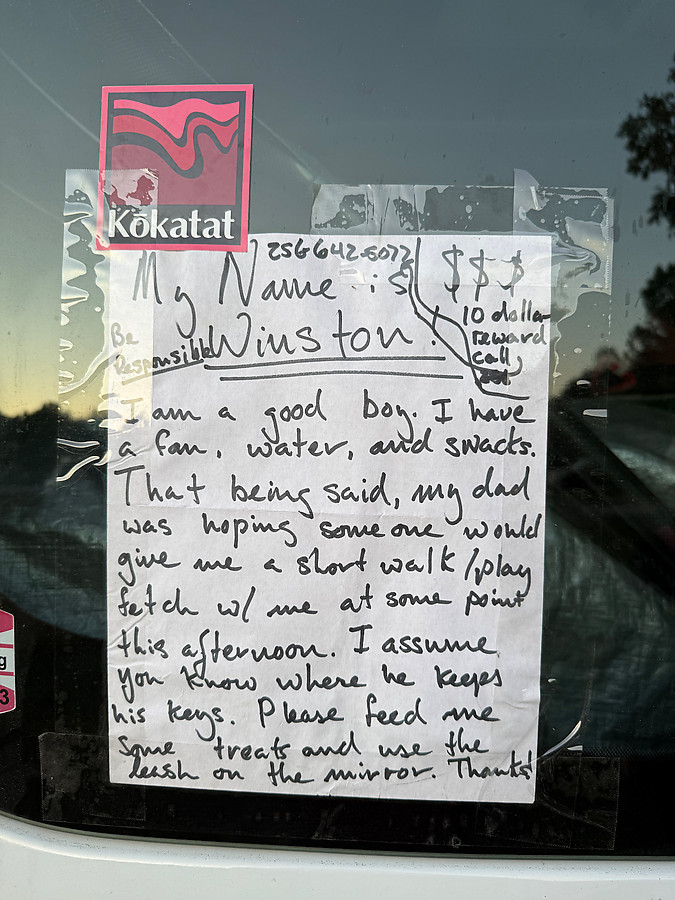 Kōkatat
256 642-5077
My Name is $$$
10 dollar
reward
call,
Be
Responsible
Winston.
I am a good boy. I have
a fan, water, and snacks.
That being said, my dad
was hoping someone would
give me a short walk/play
fetch w/ me at some point
this afternoon. I assume
you know where he keeps
his keys. Please feed me
some treats and use the
leash on the mirror. Thanks!
g
3